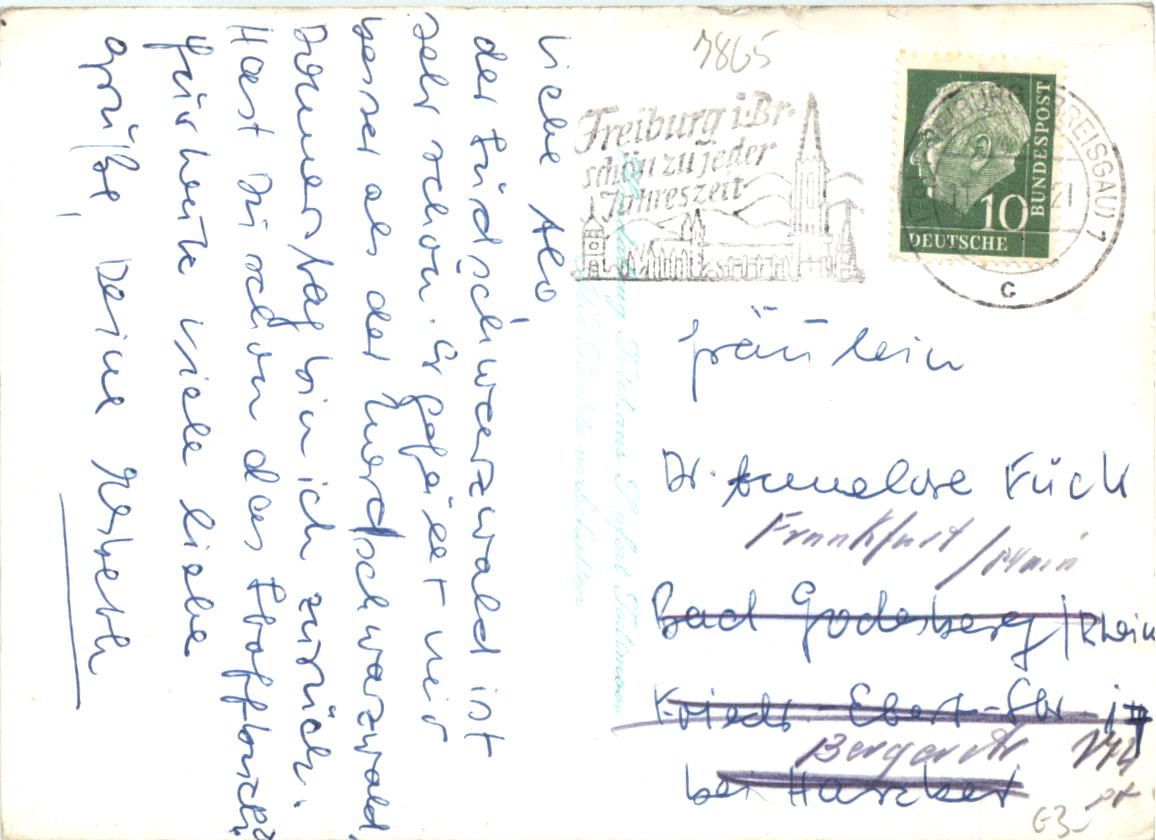 Liebe Alo,
der Südschwarzwald ist
sehr schön. Er gefällt mir
besser als der Nordschwarzwald,
Donnerstag bin ich zurück.
Hast Du schon das
für heute viele liebe
Grüße, Deine
7865
Freiburg i. Br.
schön zu jeder
Jahreszeit
FREIBURG (BREISGAU) 1
c
10
DEUTSCHE
BUNDESPOST
Fräulein
Dr. Annelore Fück
Frankfurt / Main
Bad Godesberg / Rhein
Friedr.-Ebert-Str.
Bergerstr 174
bei